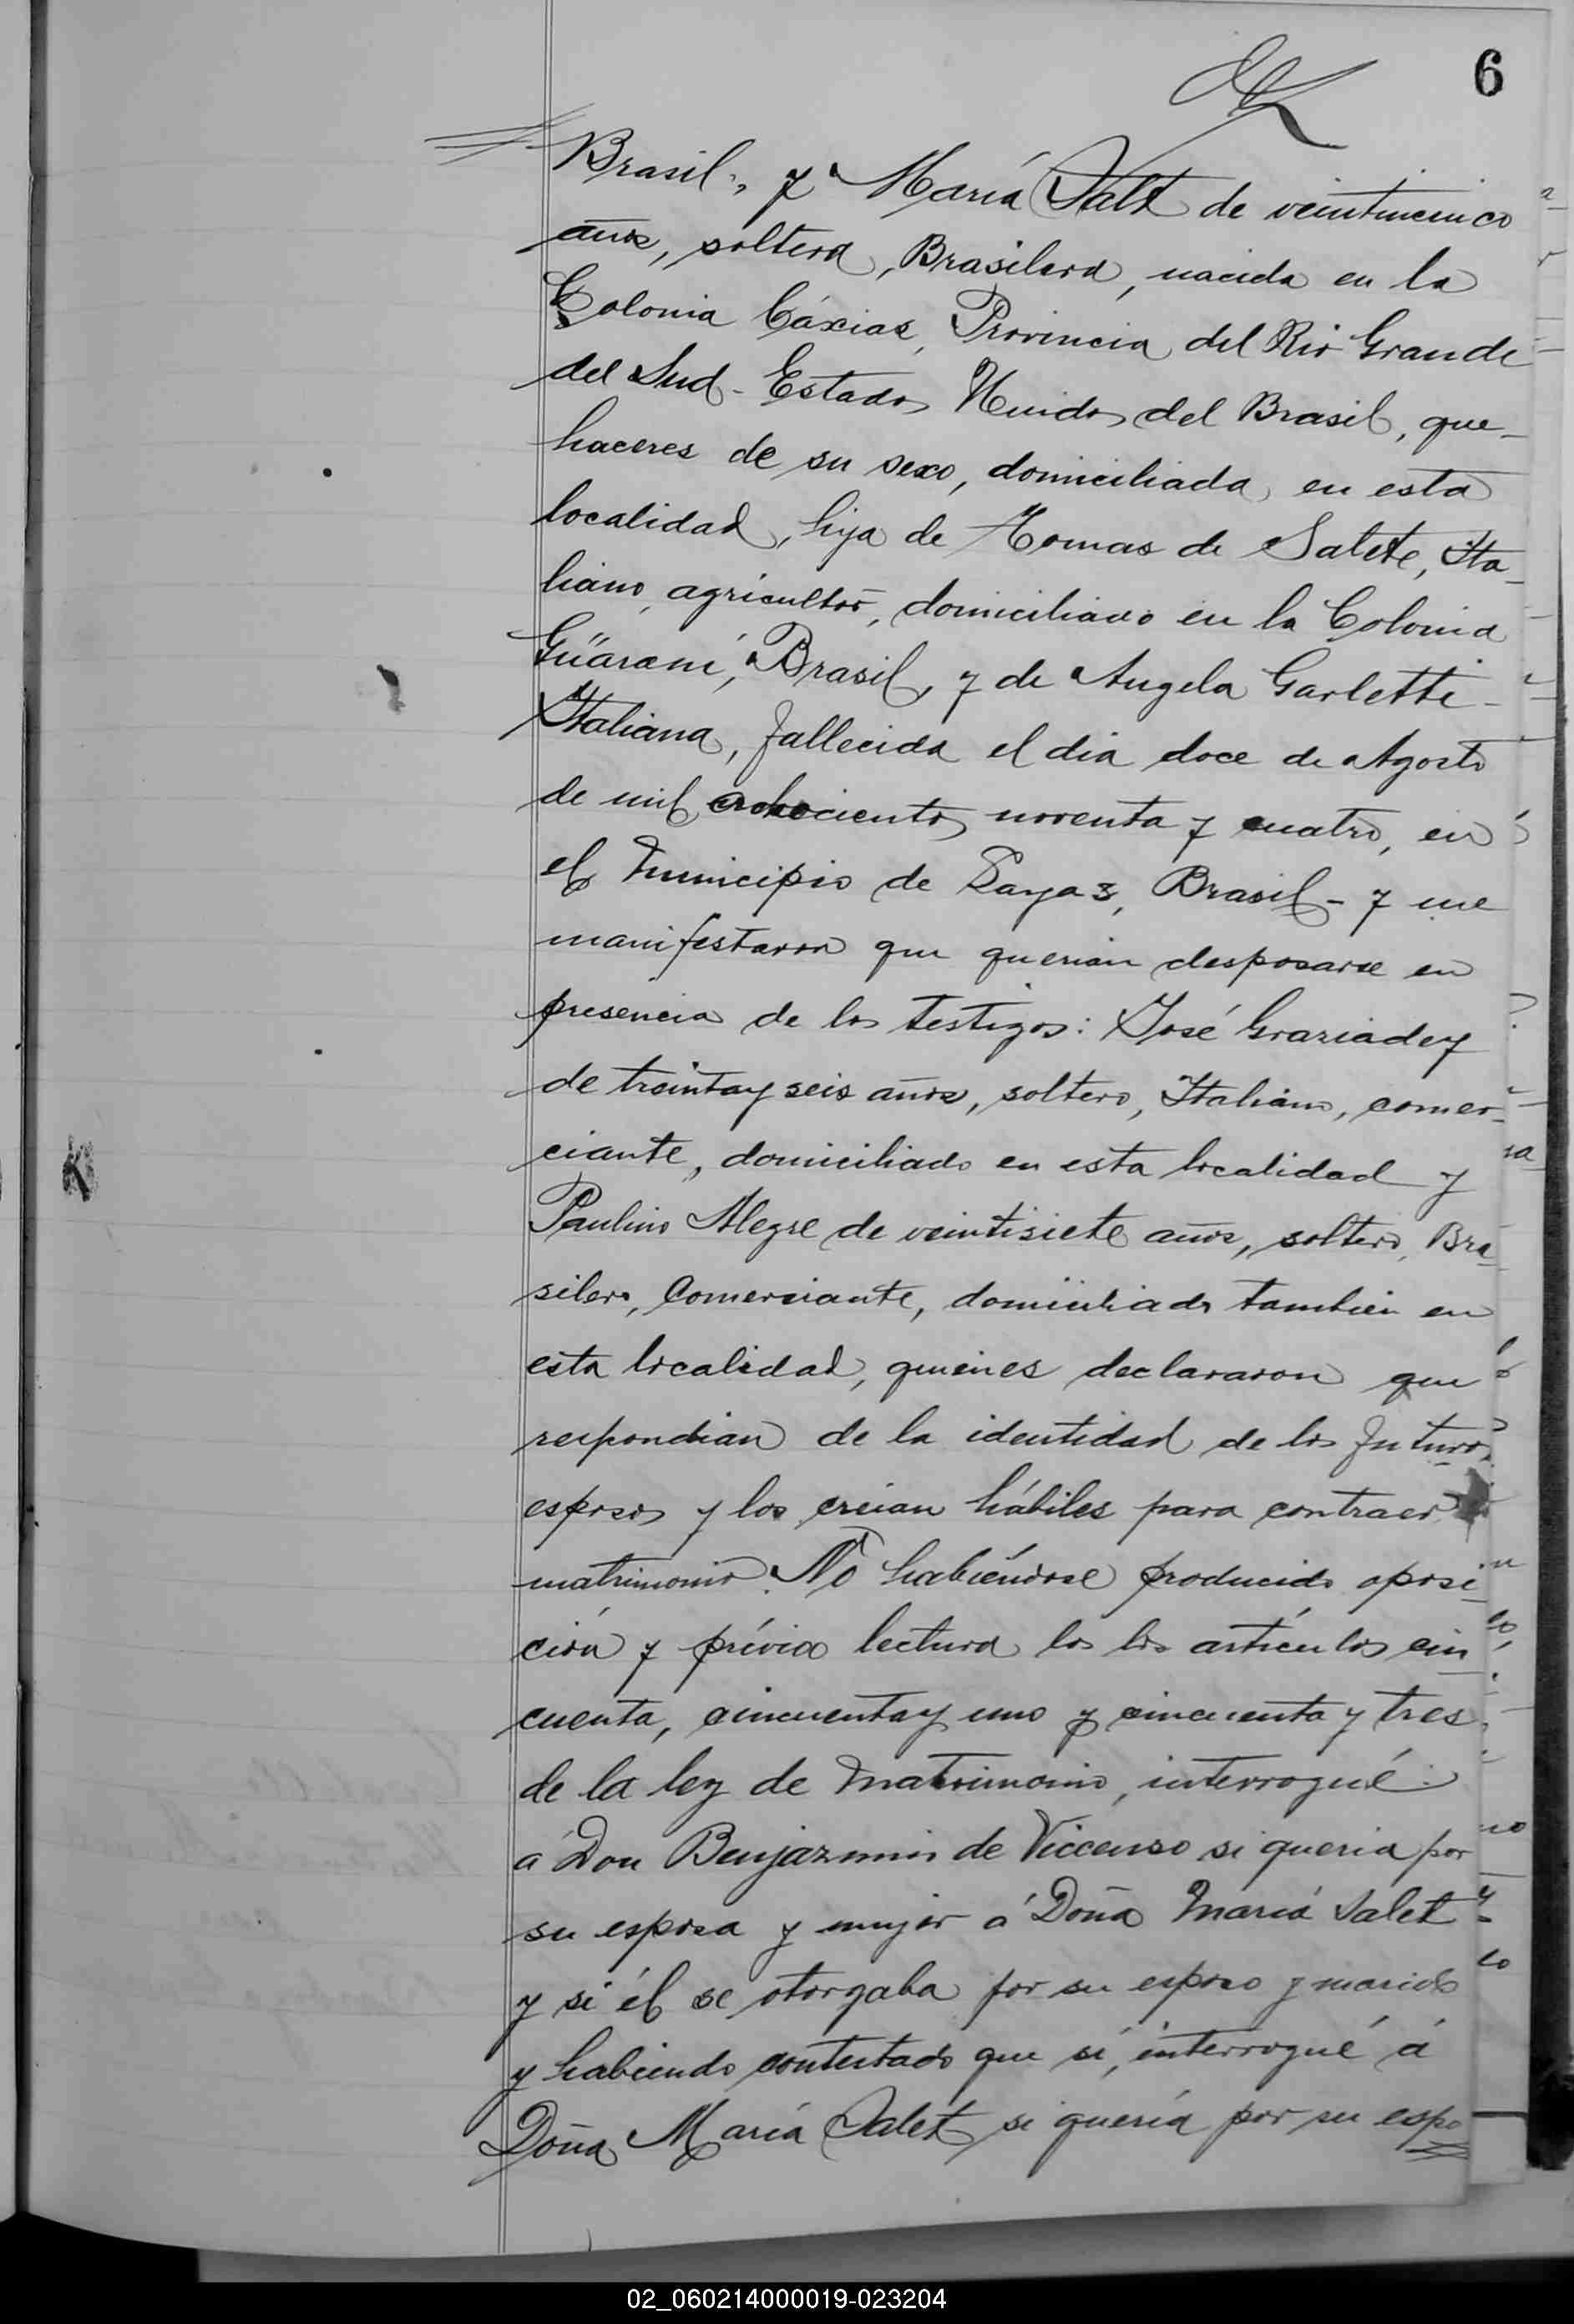 6
Brasil, y María Salt de veinticinco
años, soltera, Brasilera, nacida en la
Colonia Cáxias, Provincia del Rio Grande
del Sud - Estados Unidos del Brasil, que-
haceres de su sexo, domiciliada en esta
localidad, hija de Tomas de Salete, Ita-
liano, agricultor, domiciliado en la Colonia
Güaraní, Brasil, y de Angela Garletti -
Italiana, fallecida el dia doce de Agosto
de mil ochocientos noventa y cuatro, en
el Municipio de Brasil - y me
manifestaron que querian desposarse en
presencia de los testigos: José Graziadey
de treinta y seis años, soltero, Italiano, comer-
ciante, domiciliado en esta localidad y
Paulino Alegre de veintisiete años, soltero, Bra-
silero, Comerciante, domiciliado tambien en
esta localidad, quienes declararon que
respondian de la identidad de los futuros
esposos y los creian hábiles para contraer
matrimonio. No habiéndose producido oposi-
ción y prévia lectura los los artículos cin-
cuenta, cincuenta y uno y cincuenta y tres
de la ley de Matrimonio, interrogué
á Don Benjazmin de Viccenso si queria por
su esposa y mujer á Doña María Salet
y si él se otorgaba por su esposo y marido
y habiendo contestado que sí, interrogué á
Doña María Salet si quería por su espo
02_060214000019-023204